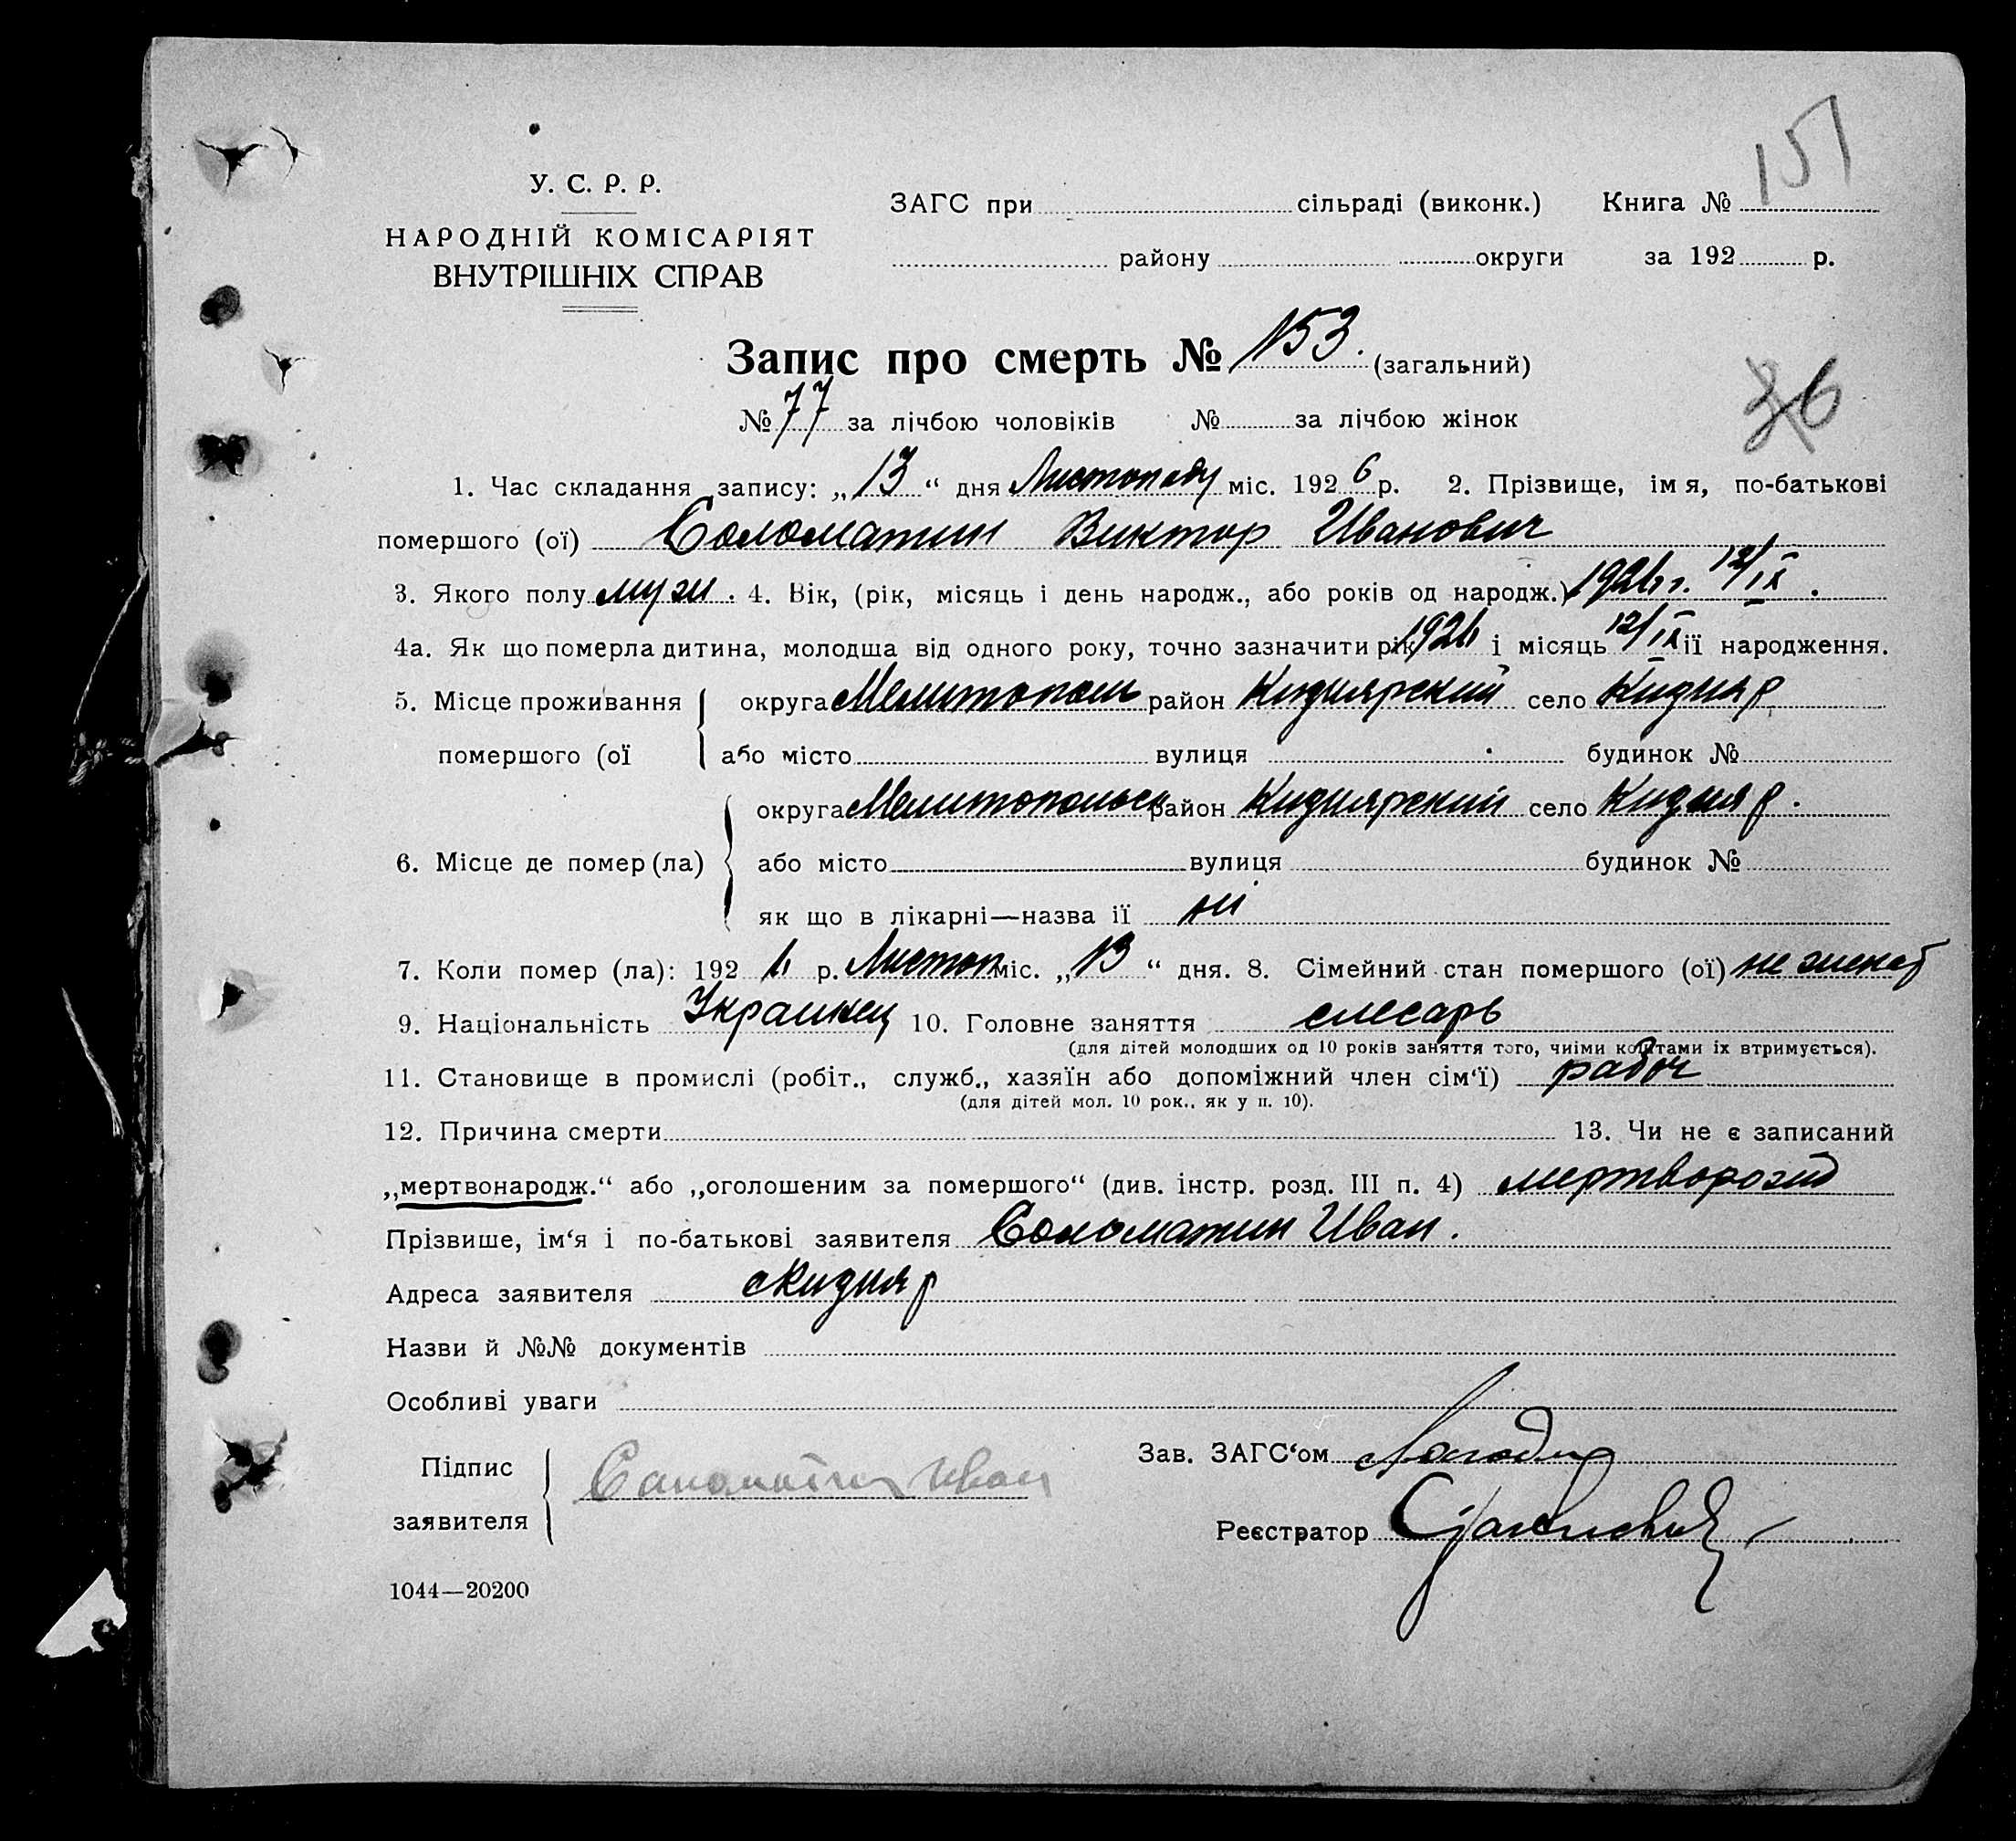 151
У. С. Р. Р.
НАРОДНІЙ КОМІСАРІЯТ
ВНУТРІШНІХ СПРАВ
ЗАГС при сільраді (виконк.) Книга №
району округи за 192 р.
Запис про смерть № 153. (загальний)
36
№ 77 за лічбою чоловіків № за лічбою жінок
1. Час складання запису: „13“ дня Листопаду міс. 1926 р. 2. Прізвище, імя, по-батькові
помершого (ої) Соломатин Виктор Иванович
3. Якого полу муж. 4. Вік, (рік, місяць і день народж., або років од народж.) 1926 г. 12/IX.
4а. Як що померла дитина, молодша від одного року, точно зазначити рік 1926 і місяць 12/IX ії народження.
5. Місце проживання округа Мелитопол район Кизиярский село Кизияр
помершого (ої або місто вулиця будинок №
округа Мелитопольск район Кизиярский село Кизияр.
6. Місце де помер (ла) або місто вулиця будинок №
як що в лікарні—назва ії ні
7. Коли помер (ла): 1926 р. Листоп міс. „13“ дня. 8. Сімейний стан помершого (ої) не женат
9. Національність Украинец 10. Головне заняття слесарь
(для дітей молодших од 10 років заняття того, чиїми коштами іх втримується).
11. Становище в промислі (робіт., служб., хазяїн або допоміжний член сім‘ї) рабоч
(для дітей мол. 10 рок., як у п. 10).
12. Причина смерти 13. Чи не є записаний
„мертвонародж.“ або „оголошеним за помершого“ (див. інстр. розд. III п. 4) мертворожд
Прізвише, ім‘я і по-батькові заявителя Соломатин Иван.
Адреса заявителя с Кизияр
Назви й №№ документів
Особливі уваги
Підпис Зав. ЗАГС‘ом
заявителя Иван
Реєстратор
1044—20200